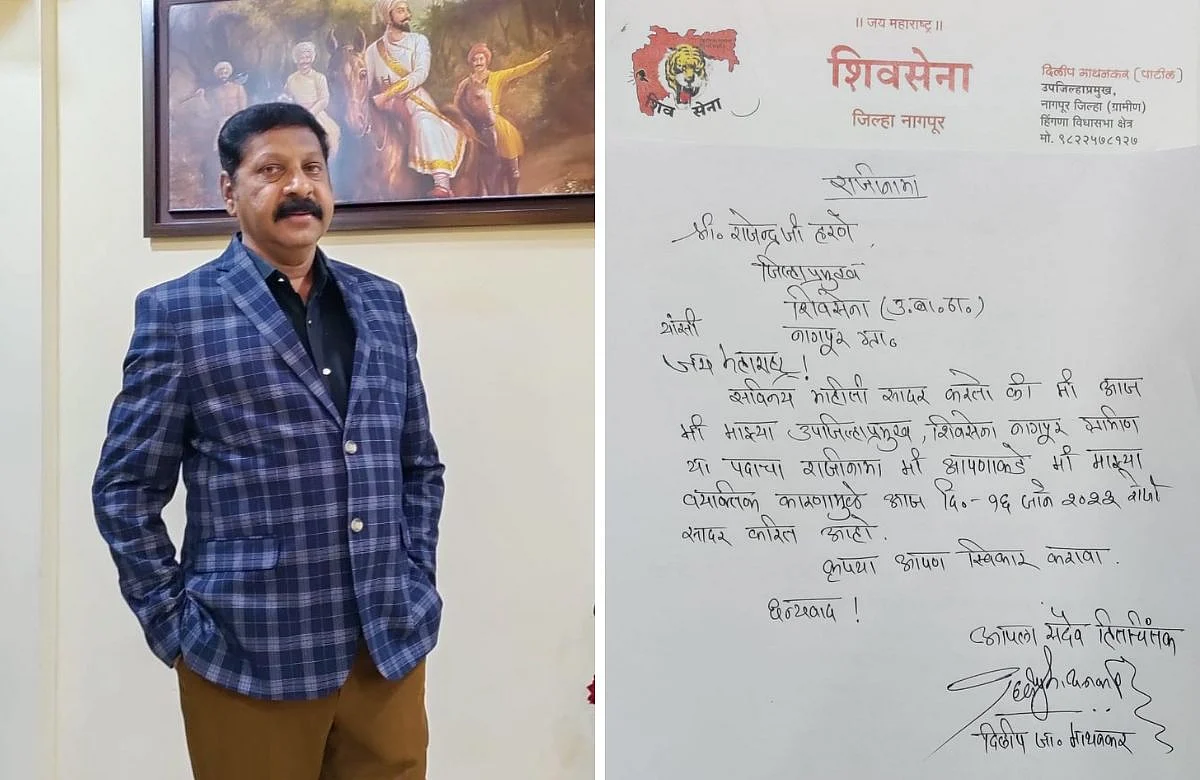 ॥ जय महाराष्ट्र ॥
शिवसेना
जिल्हा नागपूर
शिव सेना
दिलीप माथनकर (पाटील)
उपजिल्हाप्रमुख,
नागपूर जिल्हा (ग्रामीण)
हिंगणा विधासभा क्षेत्र
मो. ९८२२५७८१२७
राजिनामा
श्री. राजेन्द्रजी हरणे,
जिल्हाप्रमुख
शिवसेना (उ.बा.ठा.)
यांसी नागपूर ग्रा.
जय महाराष्ट्र!
सविनय माहीती सादर करतो की मी आज
मी माझ्या उपजिल्हाप्रमुख, शिवसेना नागपूर ग्रामिण
या पदाचा राजीनामा मी आपणाकडे मी माझ्या
वयक्तिक कारणामुळे आज दि.- १६ जाने रोजी
सादर करित आहो.
कृपया आपण स्विकार करावा.
धन्यवाद!
आपला सदैव हितचिंतक
दिलीप जा. माथनकर